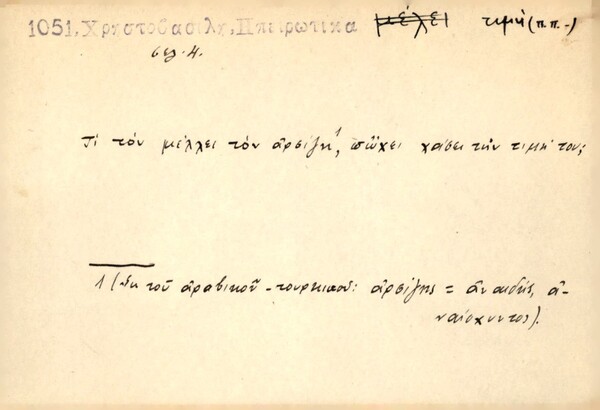 1051, Χρηστοβασίλη, Ηπειρωτικά μέλει τιμή (π.π.-)
σελ. 4.
Τί τὸν μέλλει τὸν ἀρσίζη¹, πὤχει χάσει τὴν τιμή του;
1 (Ἐκ τοῦ ἀραβικοῦ - τουρκικοῦ: ἀρσίζης = ἀναιδής, ἀ-
ναίσχυντος).